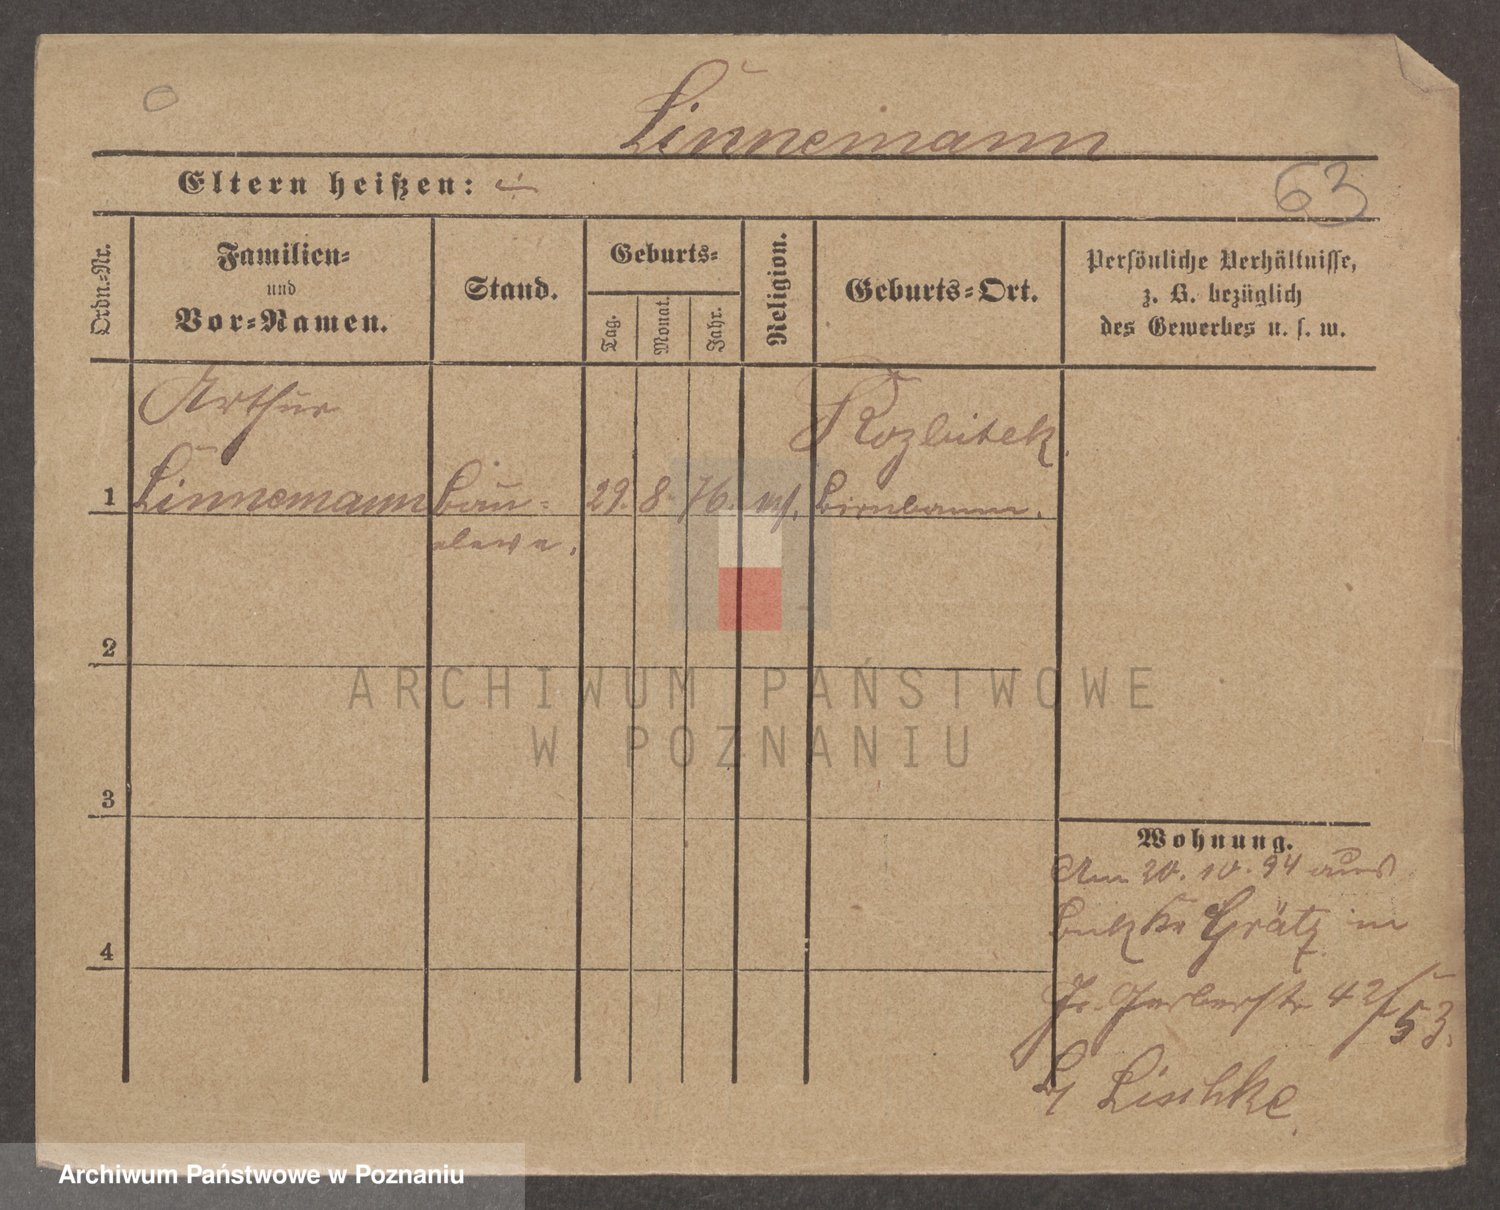 Linnemann
Eltern heißen:
63
Ordn.-Nr.
Familien-
und
Vor-Namen.
Stand.
Geburts-
Tag.
Monat.
Jahr.
Religion.
Geburts-Ort.
Persönliche Verhältnisse,
z. B. bezüglich
des Gewerbes u. s. w.
Arthur
Rozbitek
1 Linnemann Bau- 29. 8. 76. Birnbaum.
eleve.
2
ARCHIWUM PAŃSTWOWE
W POZNANIU
3
Wohnung.
Am 20. 10. 94 aus
Buk Kr Grätz in
42/53.
b/ Lischke
4
Archiwum Państwowe w Poznaniu